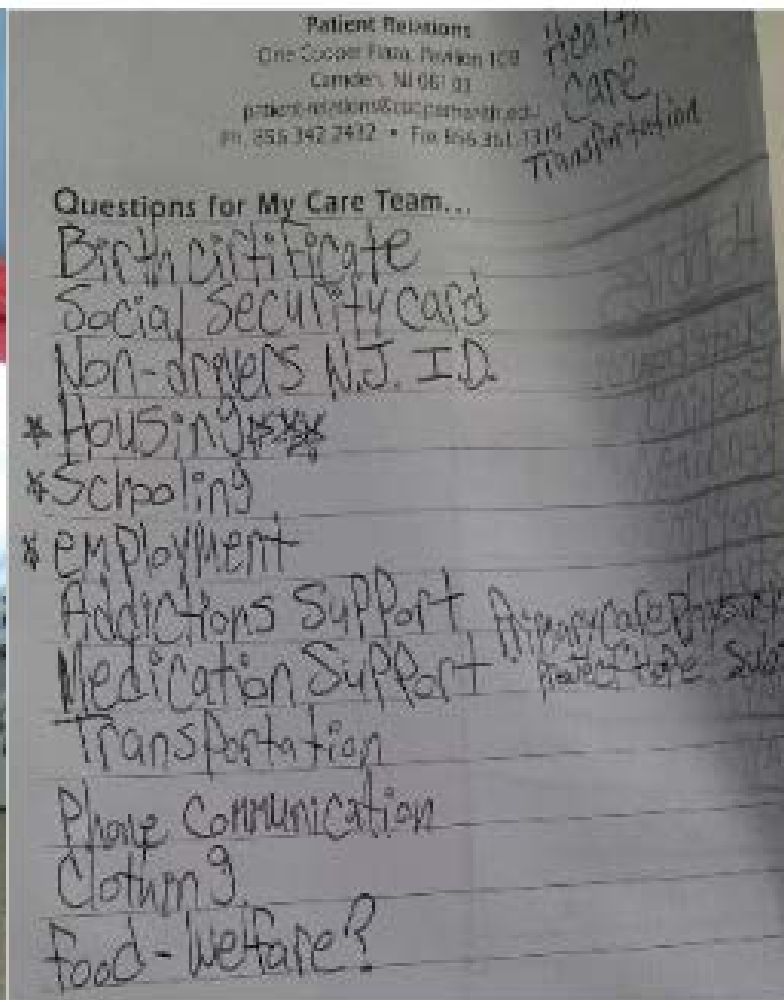 Patient Relations
One Cooper Plaza, Pavilion
Camden, NJ
Ph. 856.342.2432 • Fax 856.361.1319
Health
Care
Transportation
Questions for My Care Team...
Birth cirtificate
Social Security Card
Non-drivers N.J. I.D.
*Housing***
*Schooling
*employment
Addictions Support Primary Care
Medication Support Project Hope
Transportation
Phone Communication
Clothing
Food-Welfare?